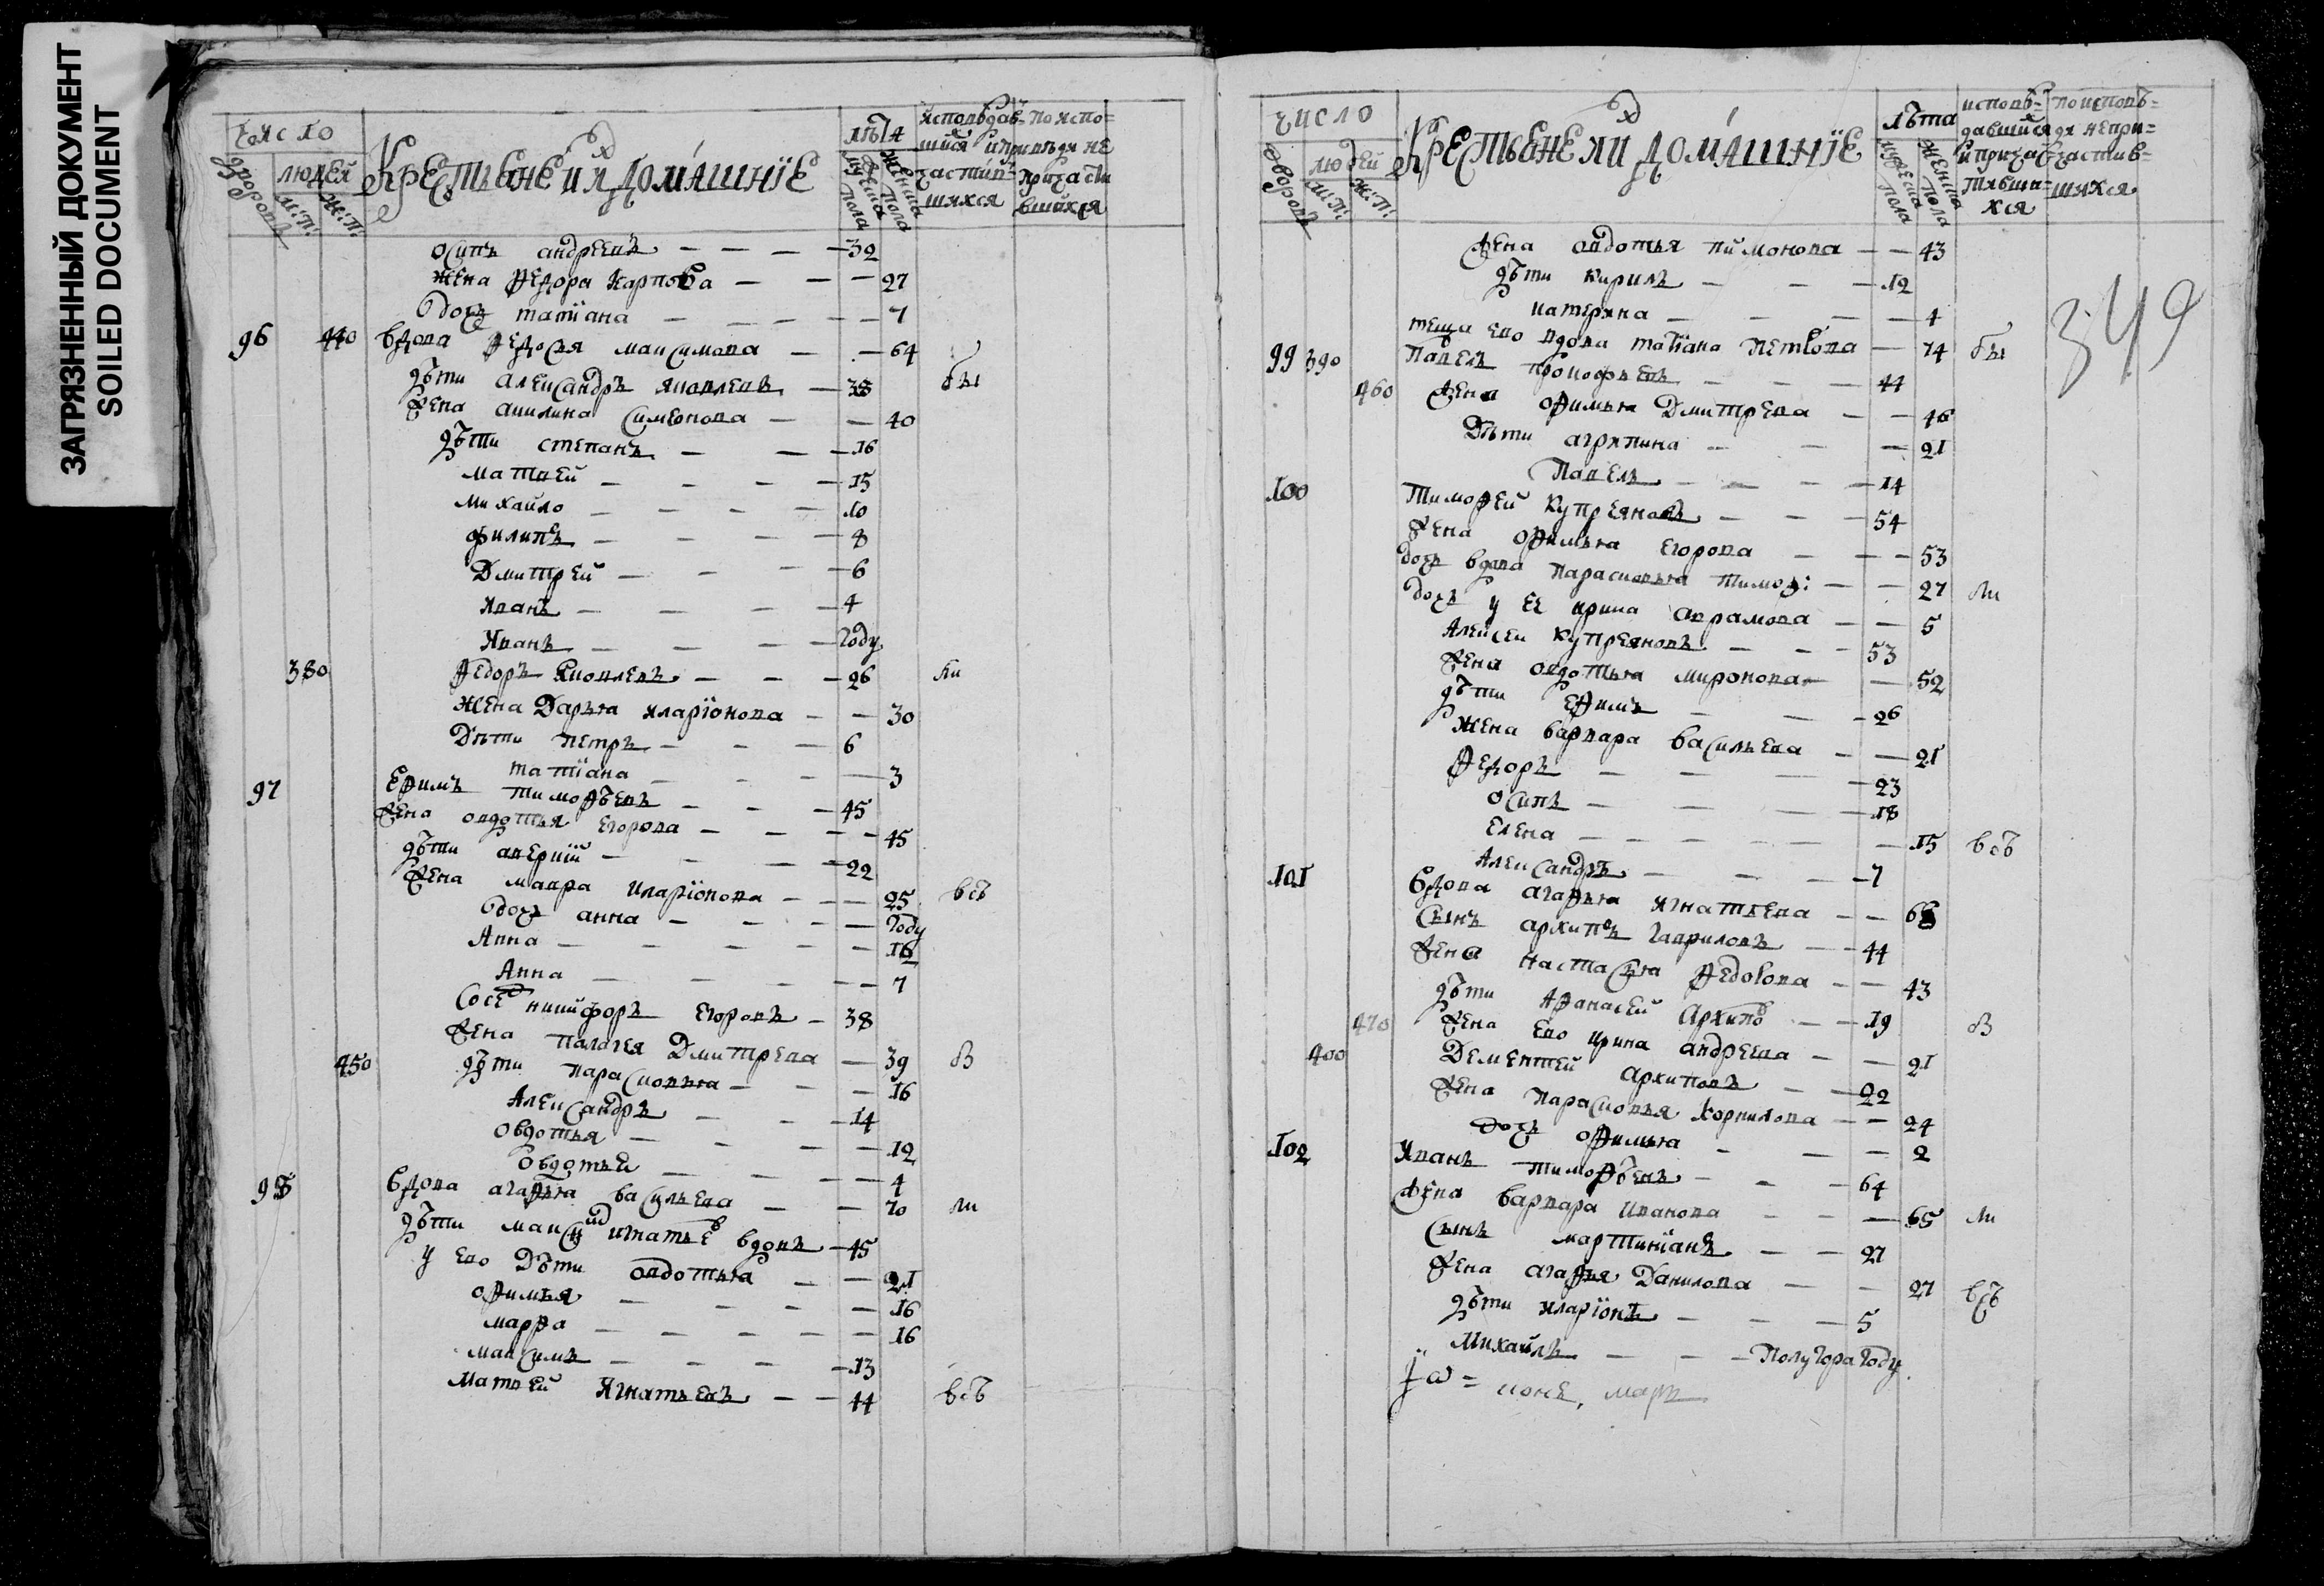 ЗАГРЯЗНЕННЫЙ ДОКУМЕНТ
SOILED DOCUMENT
число
дворовъ
людей
м: п:
ж: п:
Крестьяне и ихъ домашніе
лѣта
мужеска пола
женска пола
исповѣдав-
шихся и при-
частив-
шихся
по испо-
вѣдя не
причасти
вшихся
осипъ андреевъ 32
жена Ѳедора Карпова 27
дочь татіана 7
96 440 вдова Ѳедосья максимова 64
дѣти александръ яковлевъ 38 бы
жена акилина симеонова 40
дѣти степанъ 16
матвей 15
михайло 10
филипъ 8
Дмитрей 6
Иванъ 4
Иванъ году
380 Ѳедоръ Яковлевъ 26 ли
жена Дарья иларіонова 30
Дѣти петръ 6
татіана 3
97 Ефимъ тимоѲѣевъ 45
жена овдотья егорова 45
дѣти аверкій 22
жена мавра иларіонова 25 всѣ
дочь анна году
Анна 16
Анна 7
никифоръ егоровъ 38
жена палагея Дмитрева 39 в
450 дѣти парасковья 16
Александръ 14
овдотья 12
овдотья 4
98 вдова агаѲья васильева 70 ли
дѣти максим игнатьев вдовъ 45
у ево Дѣти овдотья 21
оѲимья 16
марѲа 16
максимъ 13
матвей Игнатьевъ 44 всѣ
число
дворовъ
людей
м: п:
ж: п:
Крестьяне и ихъ домашніе
лѣта
мужеска пола
женска пола
исповѣ-
давшихся
и прича-
тивши-
хся
по исповѣ-
дя непри-
частив-
шихся
349
жена овдотья пимонова 43
дѣти кирилъ 12
катерина 4
теща ево вдова татіана петрова 74 бы
99 390 Павелъ прокофьевъ 44
460 жена оѲимья Дмитрева 46
Дѣти агрипина 21
Павелъ 14
100 ТимоѲей Купреяновъ 54
жена оѲимья егорова 53
дочь вдова парасковья тимоѲ: 27 ли
дочь у ее ирина аврамова 5
Алексей купреяновъ 53
жена овдотья миронова 52
дѣти еѲимъ 26
жена варвара васильева 21
Ѳедоръ 23
осипъ 18
елена 15 всѣ
Александръ 7
101 вдова агаѲья игнатьева 68
сынъ архипъ гавриловъ 44
жена настасья Ѳедорова 43
дѣти АѲанасей Архипов 19 в
470 жена ево ирина андреева 21
400 Дементей архиповъ 22
жена парасковья корнилова 24
дочь оѲимья 2
102 Иванъ тимоѲѣевъ 64
жена варвара иванова 65 ли
сынъ мартиніанъ 27
жена агаѲья Данилова 27 всѣ
дѣти иларіонъ 5
Михайлъ Полутора году